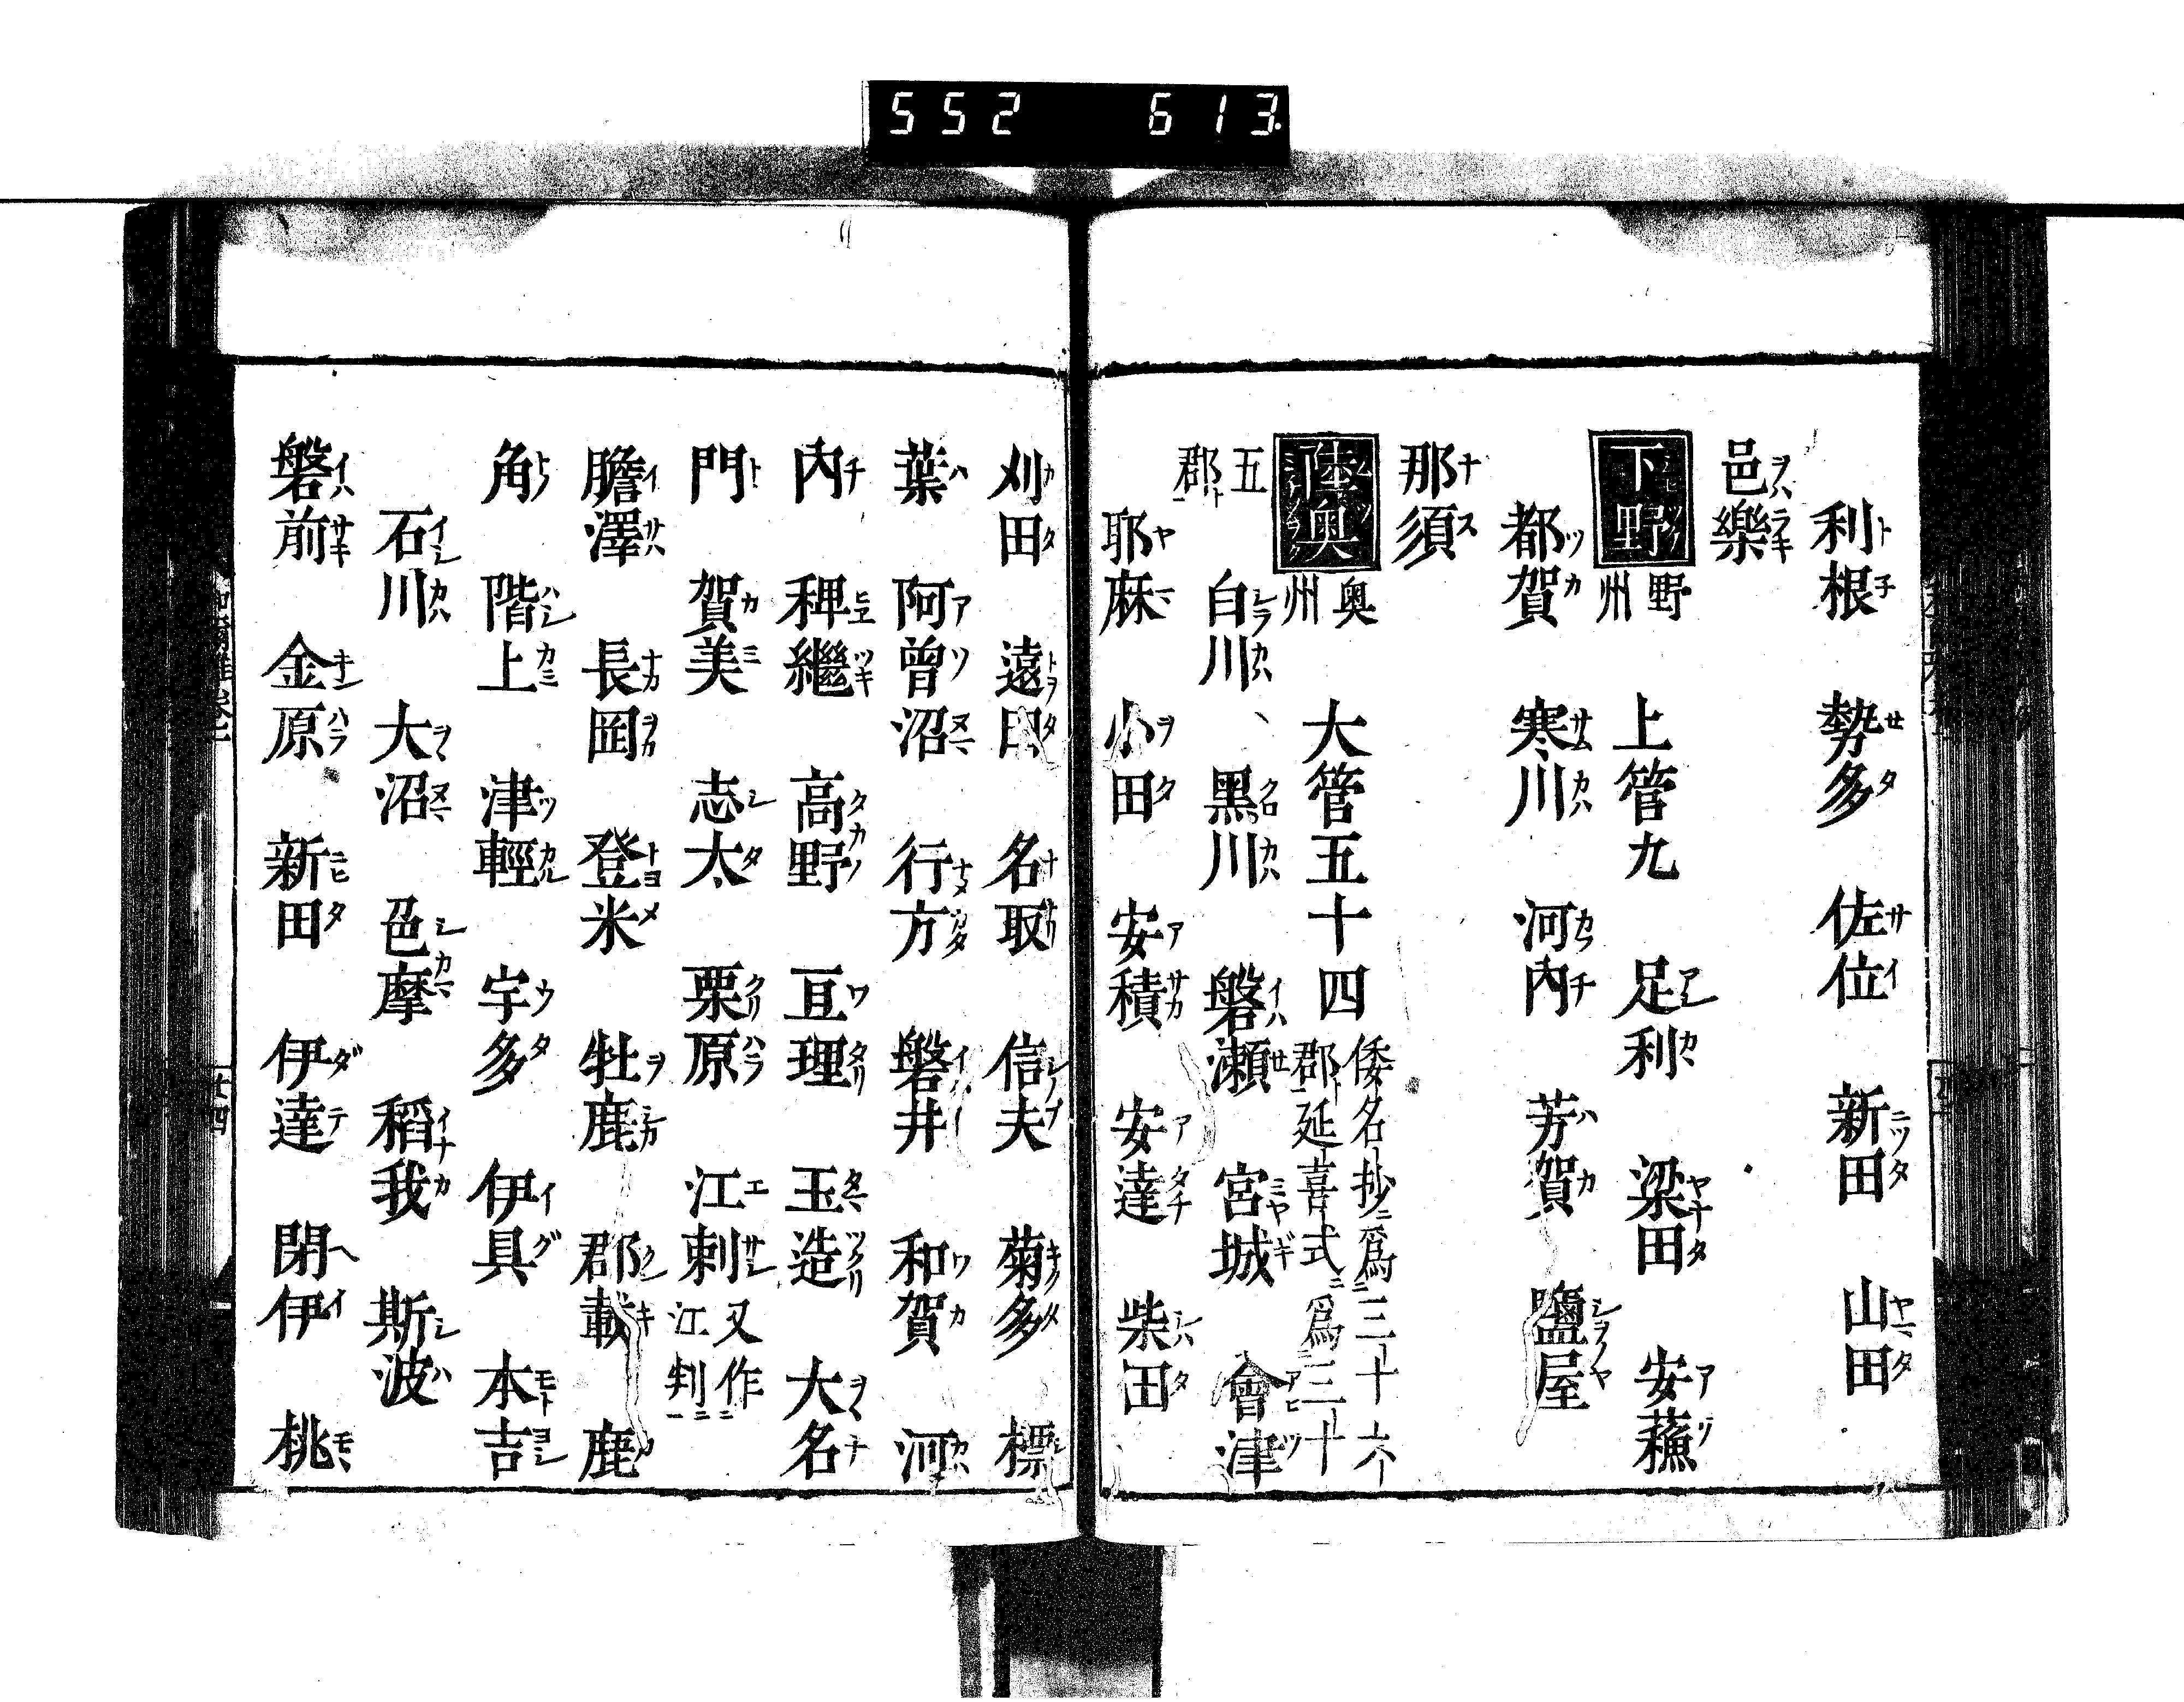 552 613
利根 勢多 佐位 新田 山田
邑樂
下野 野州 上管九 足利 梁田 安蘓
都賀 寒川 河內 芳賀 鹽屋
那須
陸奥 奥州 大管五十四 倭名抄爲三十六郡延喜式爲三十
五郡 白川 黑川 磐瀬 宮城 會津
耶麻 小田 安積 安達 柴田
刈田 遠田 名取 信夫 菊多 標
葉 阿曾沼 行方 磐井 和賀 河
內 稗繼 高野 亘理 玉造 大名
門 賀美 志太 栗原 江刺 又作江判
膽澤 長岡 登米 牡鹿 郡載 鹿
角 階上 津輕 宇多 伊具 本吉
石川 大沼 色摩 稻我 斯波
磐前 金原 新田 伊達 閉伊 桃